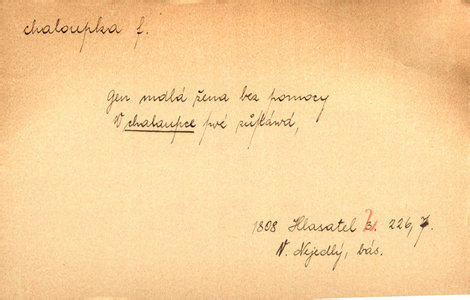 chaloupka f.
Gen mdlá žena bez pomocy
W chalaupce swé zůstáwá,
1808 Hlasatel 226,
V. Nejedlý, bás.